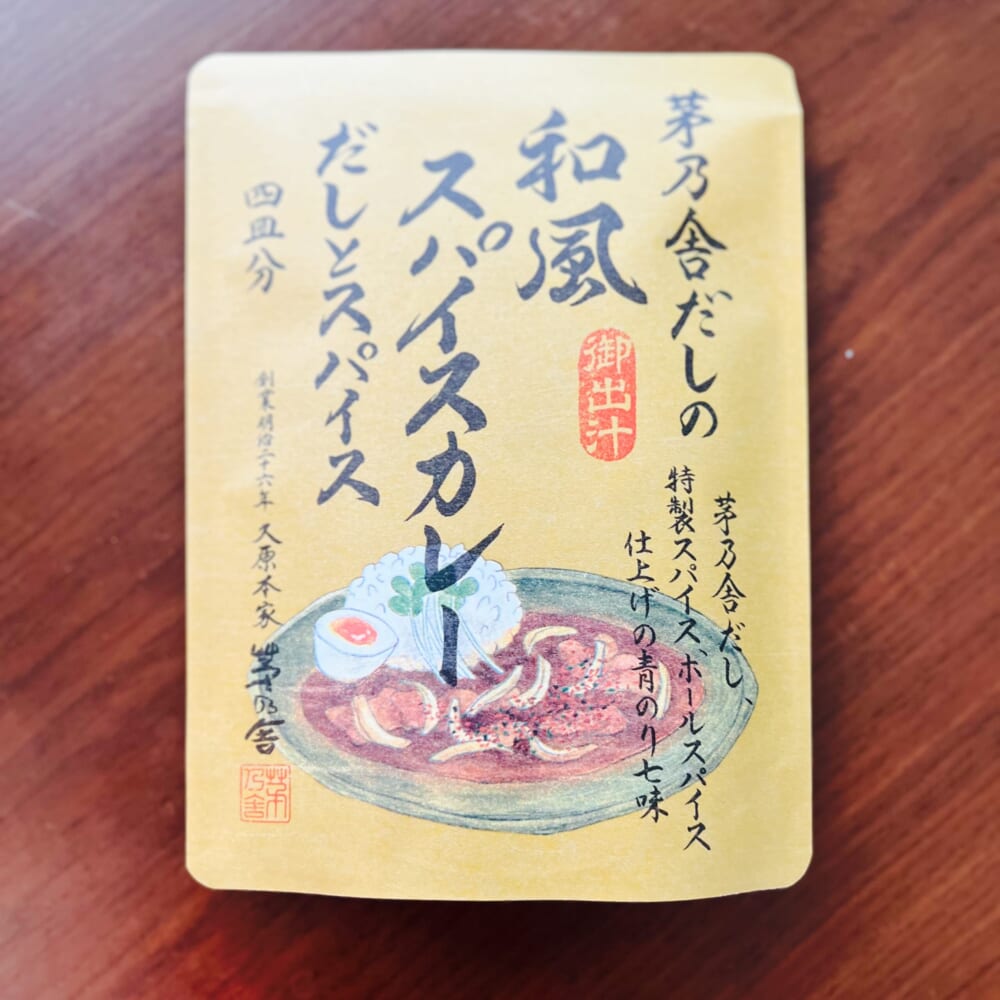 茅乃舎だしの
和風
スパイスカレー
だしとスパイス
四皿分
御出汁
茅乃舎だし、
特製スパイス、ホールスパイス
仕上げの青のり七味
創業明治二十六年 久原本家
茅乃舎
茅乃舎